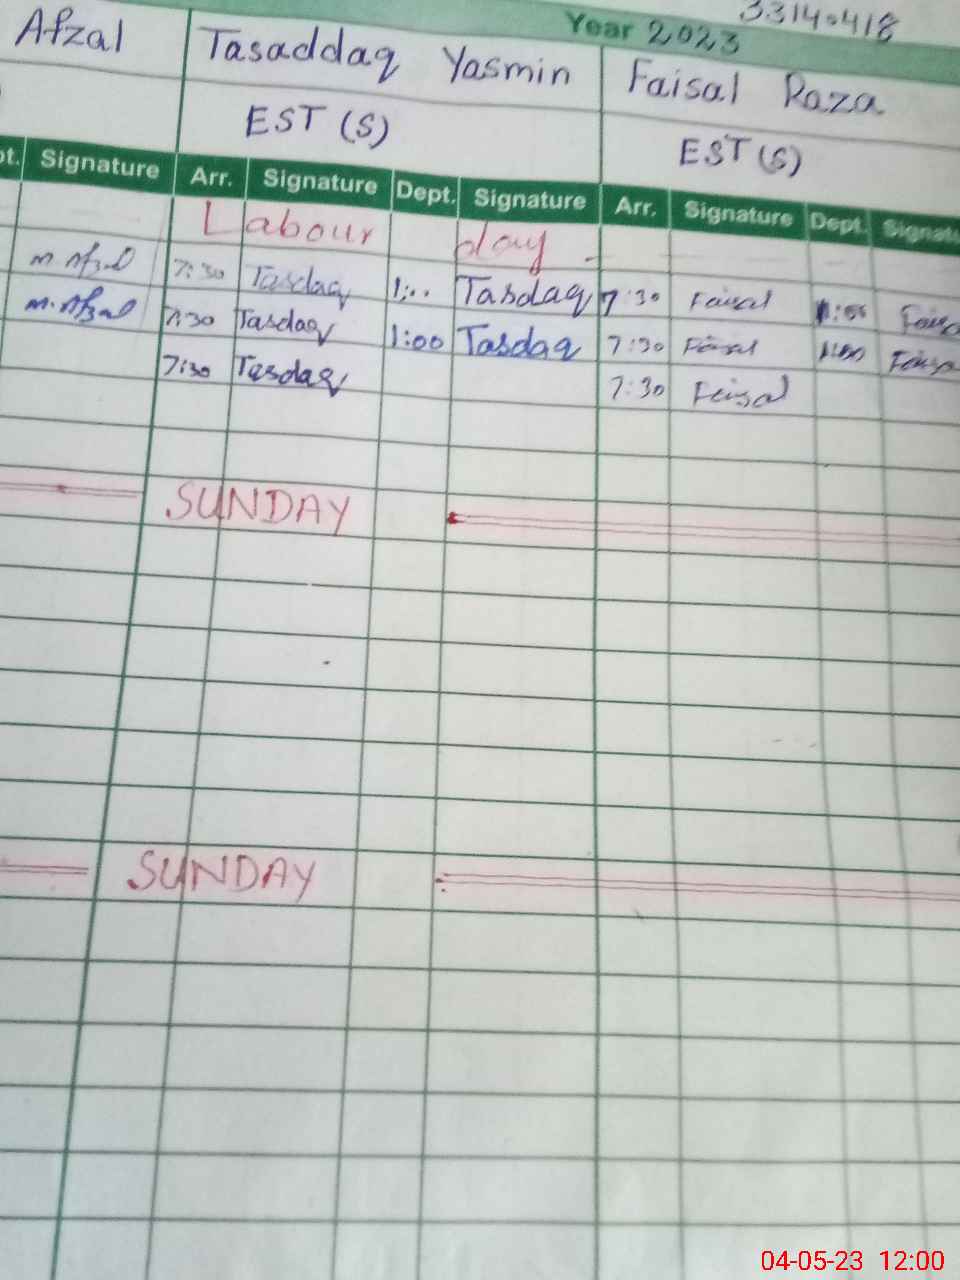 33140418
Year 2023
Afzal Tasaddaq Yasmin Faisal Raza
EST (S) EST (S)
pt. Signature Arr. Signature Dept. Signature Arr. Signature Dept. Signatu
Labour day
m. Afzal 7:30 Tasdaq 1:.. Tasdaq 7:30 Faisal 1:00 Faisa
m. Afzal 7:30 Tasdaq 1:00 Tasdaq 7:30 Faisal 1:00 Faisa
7:30 Tasdaq 7:30 Faisal
SUNDAY
SUNDAY
04-05-23 12:00